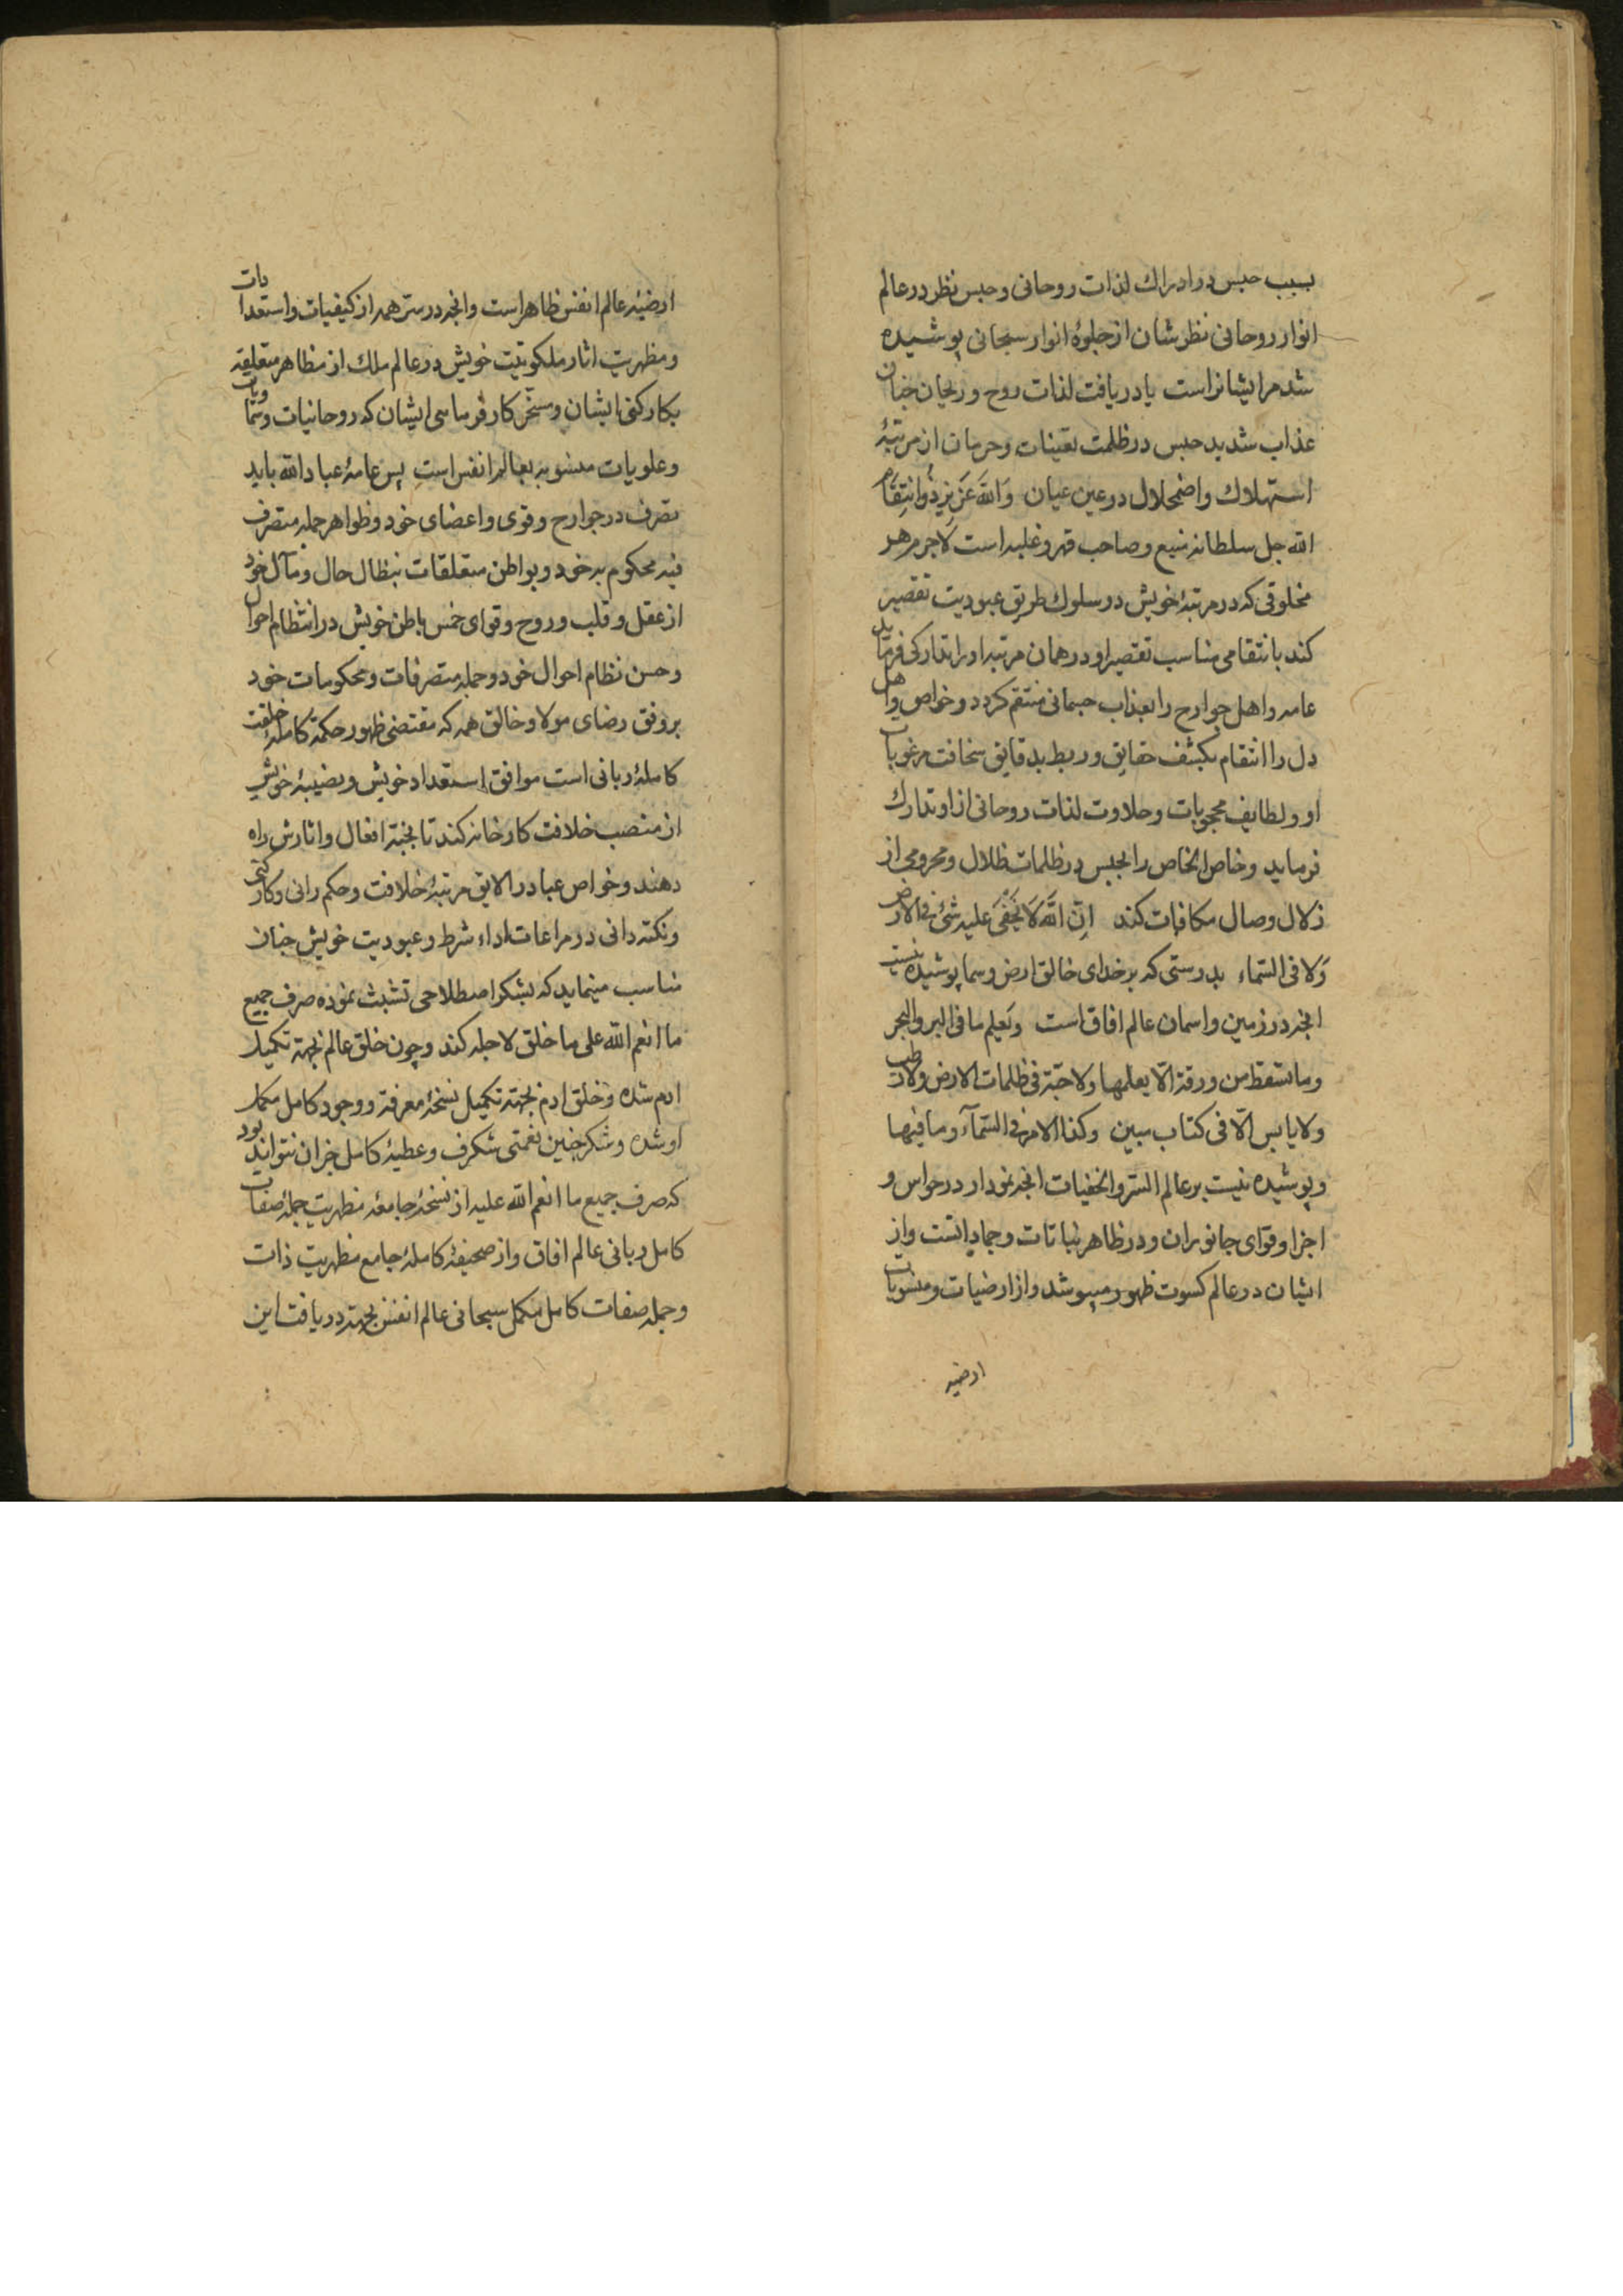 بسبب حبس در ادراك لذات روحانی و حبس نظر در عالم
انوار روحانی نظرشان از جلوهٔ انوار سبحانی پوشیده
شد مر ایشانراست یا دریافت لذات روح و ریحان جنان
عذاب شدید حبس در ظلمت تعینات و حرمان از مرتبهٔ
استهلاك و اضمحلال در عین عیان وَاللهُ عَزیزٌ ذُوانتِقَامٍ
الله جل سلطانه منیع و صاحب قهر و غلبه است لاجرم هر
مخلوقی که در مرتبهٔ خویش در سلوك طریق عبودیت تقصیر
کند بانتقامی مناسب تقصیر او در همان مرتبه او را تدارکی فرماید
عامه و اهل جوارح را بعذاب جسمانی منتقم کردد و خواص و اهل
دل را انتقام بکشف حقایق و ربط بدقایق سخافت مرغوبات
او و لطایف محجوبات و حلاوت لذات روحانی از او تدارك
فرماید و خاص الخاص را بحبس در ظلمات ظلال و محرومی از
زلال وصال مکافات کند اِنّ اللّٰهَ لَا یَخْفٰی علیه شیٔ فی الارض
وَلا فی السّماء بدرستی که بر خدای خالق ارض و سما پوشیده نیست
انچه در زمین و اسمان عالم افاق است وَیَعلم ما فی البر والبحر
وما تسقط من ورقة الّا یعلمها ولا حبّة فی ظلمات الارض ولا رطب
ولا یابس الّا فی کتاب مبین وکذا الامر فی السّمآء وما فیها
و پوشیده نیست بر عالم السّر والخفیات انچه نمودار در حواس و
اجزا و قوای جانوران و در ظاهر نباتات و جماداتست و از
ایشان در عالم کسوت ظهور میپوشد و از ارضیات و منسوبات
ارضیه
ارضیهٔ عالم انفس ظاهر است و انچه در ستر همه از کیفیات و استعدادات
و مظهریت اثار ملکوتیت خویش در عالم ملك از مظاهر متعلقه
بکارکنی ایشان و مسخّر کارفرمایی ایشان که روحانیات و سماویات
و علویات منسوبه بعالم انفس است پس عامهٔ عباد الله باید
تصرف در جوارح و قوی و اعضای خود و ظواهر جمله متصرف
فیه محکوم به خود و بواطن متعلقات بنظال حال و مآل خود
از عقل و قلب و روح و قوای خمس باطن خویش در انتظام احوال
و حسن نظام احوال خود و جمله متصرفات و محکومات خود
بر وفق رضای مولا و خالق همه که مقتضی ظهور حکمة کاملهٔ خلقت
کاملهٔ ربانی است موافق استعداد خویش و نصیبهٔ خویش
از منصب خلافت کارخانه کند تا نجنبه افعال و اثارش راه
دهند و خواص عباد را لایق مرتبهٔ خلافت و حکم رانی و کارکنی
و نکته دانی در مراعات اداء شرط و عبودیت خویش چنان
مناسب مینماید که بشکر اصطلاحی تشبث نموده صرف جمیع
ما انعم الله علی ما خلق لاجله کند و چون خلق عالم بجهة تکمیل
ادم شده و خلق ادم بجهة تکمیل نسخهٔ معرفة و وجود کامل مکمل
او شده و شکر چنین نعمتی شکرف و عطیهٔ کامل جز ان نتواند بود
که صرف جمیع ما انعم الله علیه از نسخهٔ جامعهٔ مظهریت جملهٔ صفات
کامل ربانی عالم افاق و از صحیفهٔ کاملهٔ جامع مظهریت ذات
و جمله صفات کامل مکمل سبحانی عالم انفس بجهة دریافت این